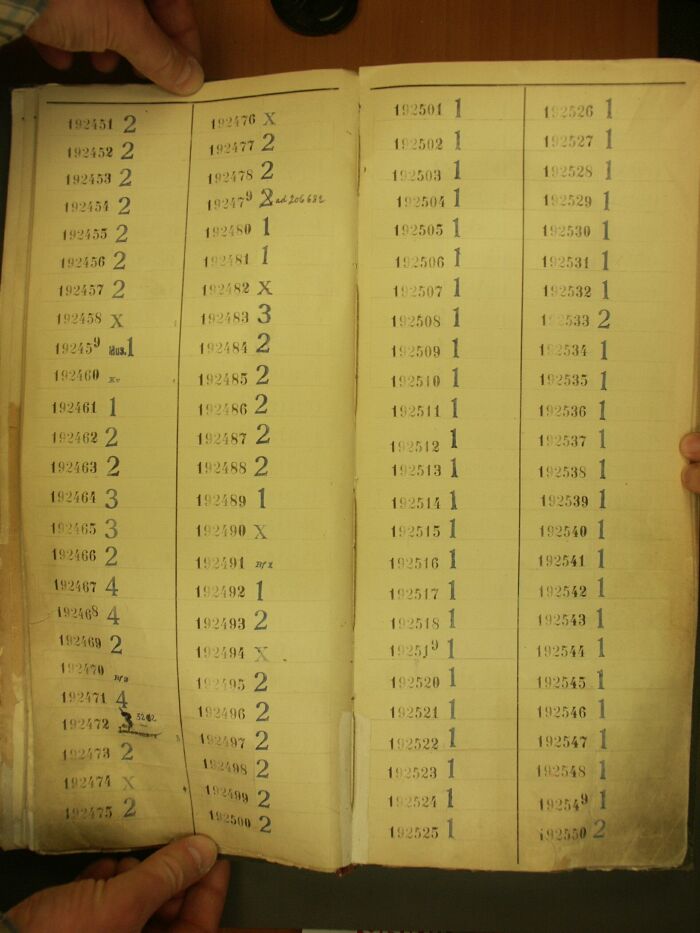 192451 2
192452 2
192453 2
192454 2
192455 2
192456 2
192457 2
192458 X
192459 Mus. 1
192460
192461 1
192462 2
192463 2
192464 3
192465 3
192466 2
192467 4
192468 4
192469 2
192470
192471 4
192472 3
192473 2
192474 X
192475 2
192476 X
192477 2
192478 2
192479 2 ad 206682
192480 1
192481 1
192482 X
192483 3
192484 2
192485 2
192486 2
192487 2
192488 2
192489 1
192490 X
192491
192492 1
192493 2
192494 X
192495 2
192496 2
192497 2
192498 2
192499 2
192500 2
192501 1
192502 1
192503 1
192504 1
192505 1
192506 1
192507 1
192508 1
192509 1
192510 1
192511 1
192512 1
192513 1
192514 1
192515 1
192516 1
192517 1
192518 1
192519 1
192520 1
192521 1
192522 1
192523 1
192524 1
192525 1
192526 1
192527 1
192528 1
192529 1
192530 1
192531 1
192532 1
192533 2
192534 1
192535 1
192536 1
192537 1
192538 1
192539 1
192540 1
192541 1
192542 1
192543 1
192544 1
192545 1
192546 1
192547 1
192548 1
192549 1
192550 2